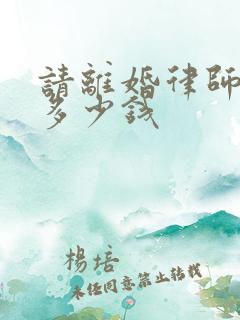 請離婚律師
多少錢
楊培
未經同意禁止轉載